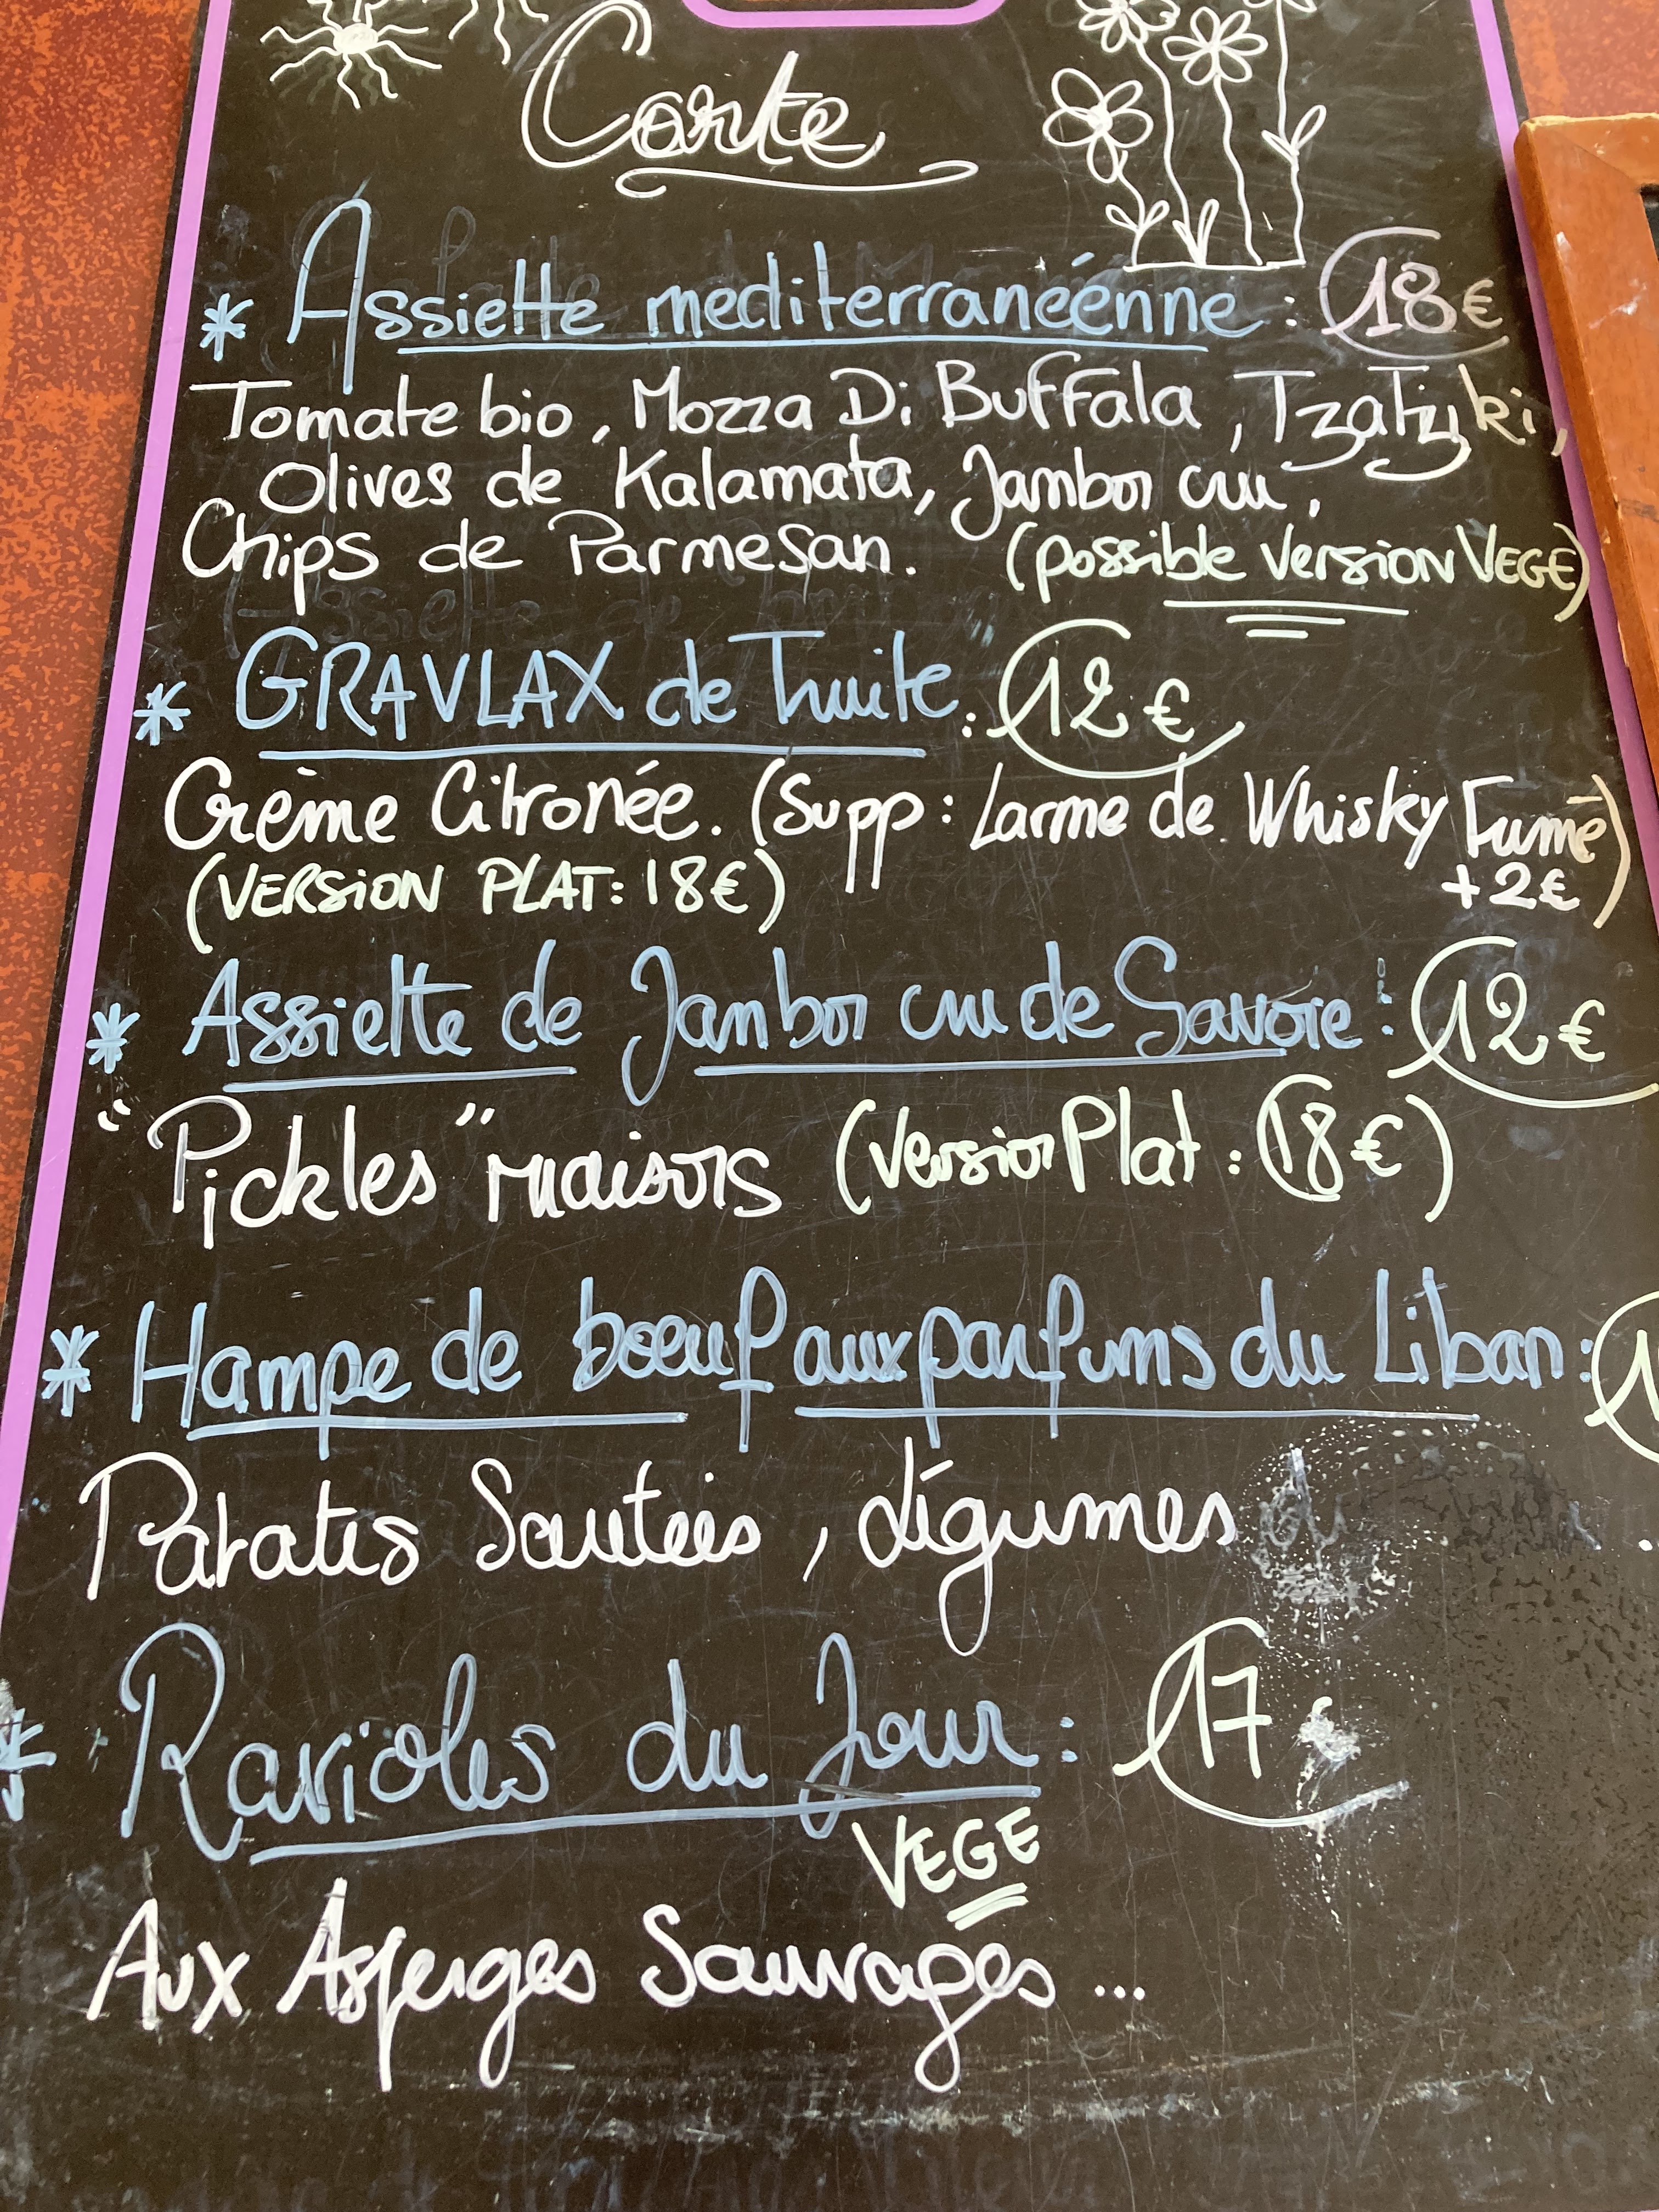 Carte
* Assiette mediterranéenne : 18 €
Tomate bio, Mozza Di Buffala, Tzatzyki,
Olives de Kalamata, Jambon cru,
Chips de Parmesan. (possible version VEGE)
* GRAVLAX de Truite : 12 €
Crème Citronée. (Supp : Larme de Whisky Fumé
(VERSION PLAT : 18 €) +2€)
* Assiette de Jambon cru de Savoie : 12 €
"Pickles" maisons (Version Plat : 18 €)
* Hampe de boeuf aux parfums du Liban :
Patates Sautées, légumes
* Ravioles du Jour : 17 €
VEGE
Aux Asperges Sauvages ...